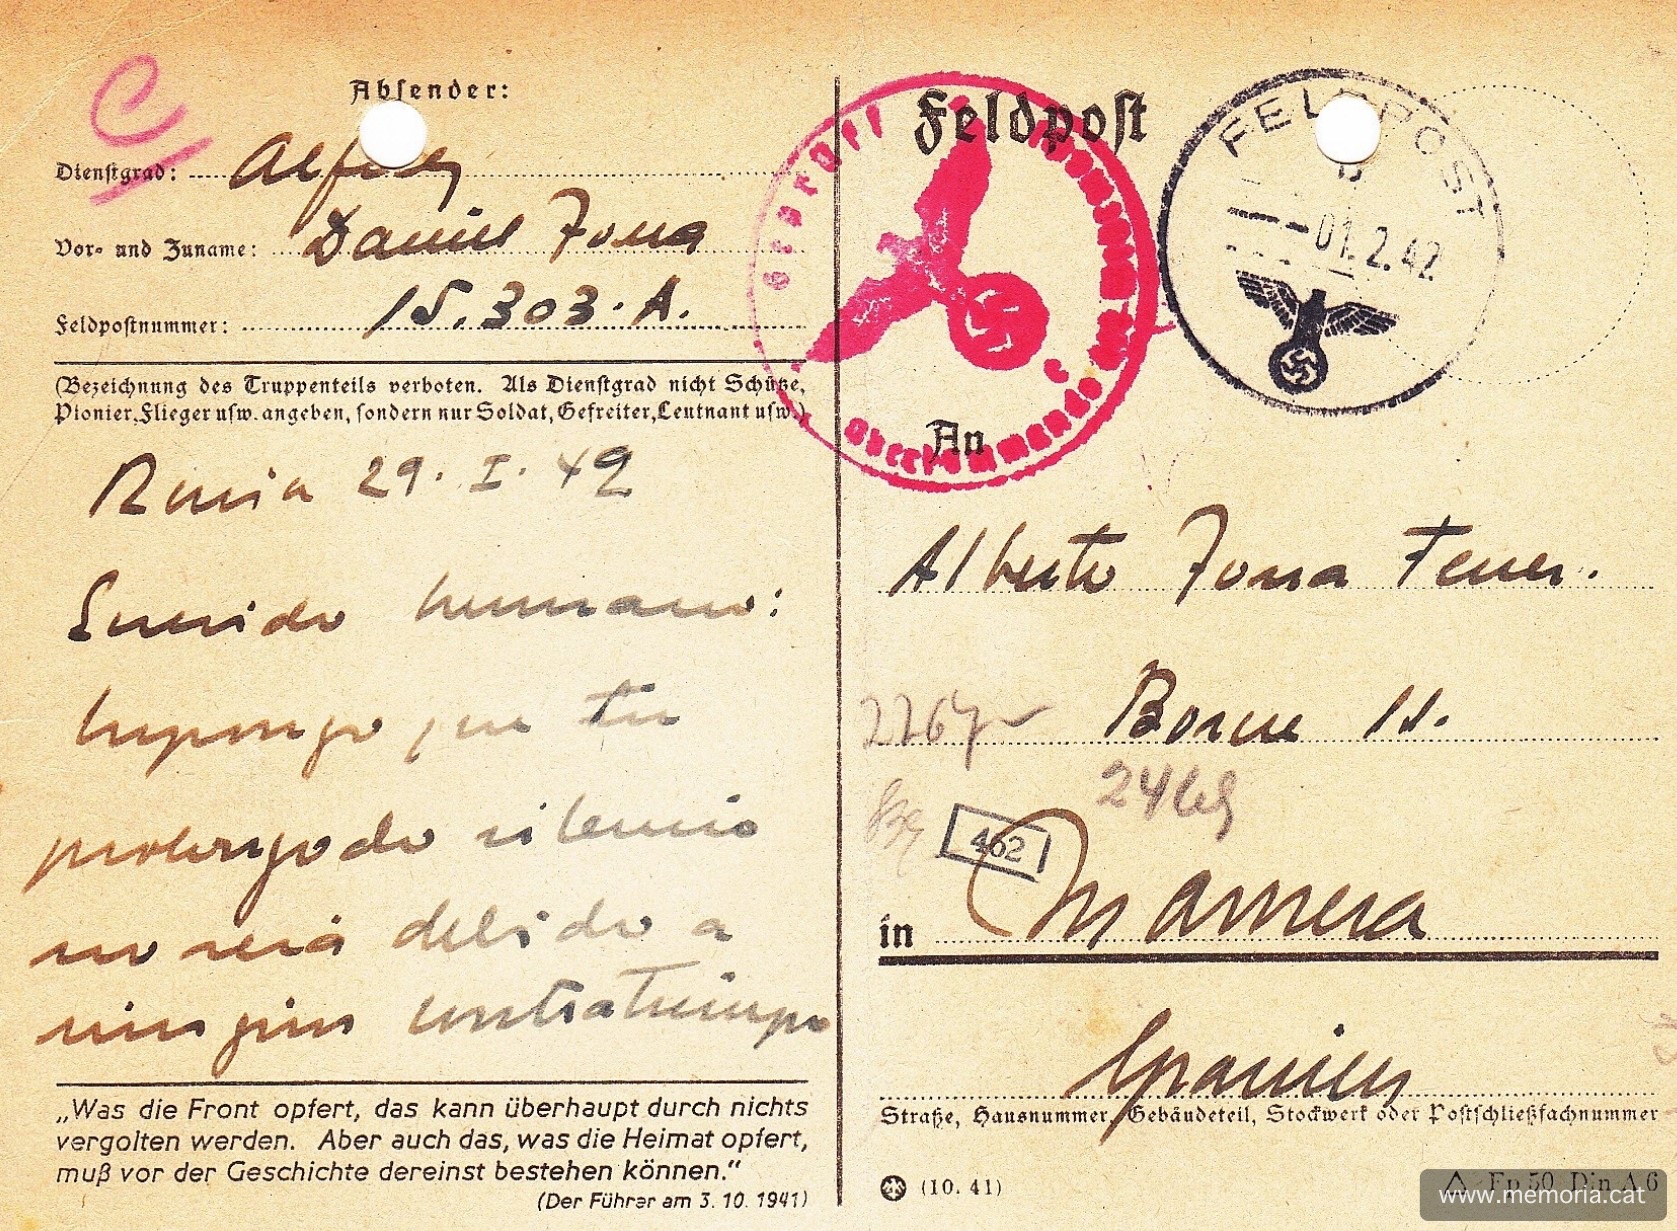 Absender:
Dienstgrad:
Vor- und Zuname: Daniel Fona
Feldpostnummer: 15.303.A.
(Bezeichnung des Truppenteils verboten. Als Dienstgrad nicht Schütze,
Pionier, Flieger usw. angeben, sondern nur Soldat, Gefreiter, Leutnant usw.)
29. I. 42
Querido hermano:
supongo que tu
prolongado silencio
no será debido a
ningún contratiempo
„Was die Front opfert, das kann überhaupt durch nichts
vergolten werden. Aber auch das, was die Heimat opfert,
muß vor der Geschichte dereinst bestehen können.“
(Der Führer am 3. 10. 1941)
Feldpost
Geprüft
Oberkommando
FELDPOST
b
-01.2.42
An
Alberto Fona
Borne 11.
462
in Manresa
Spanien
Straße, Hausnummer, Gebäudeteil, Stockwerk oder Postschließfachnummer
(10. 41)
Fp 50 Din A 6
www.memoria.cat